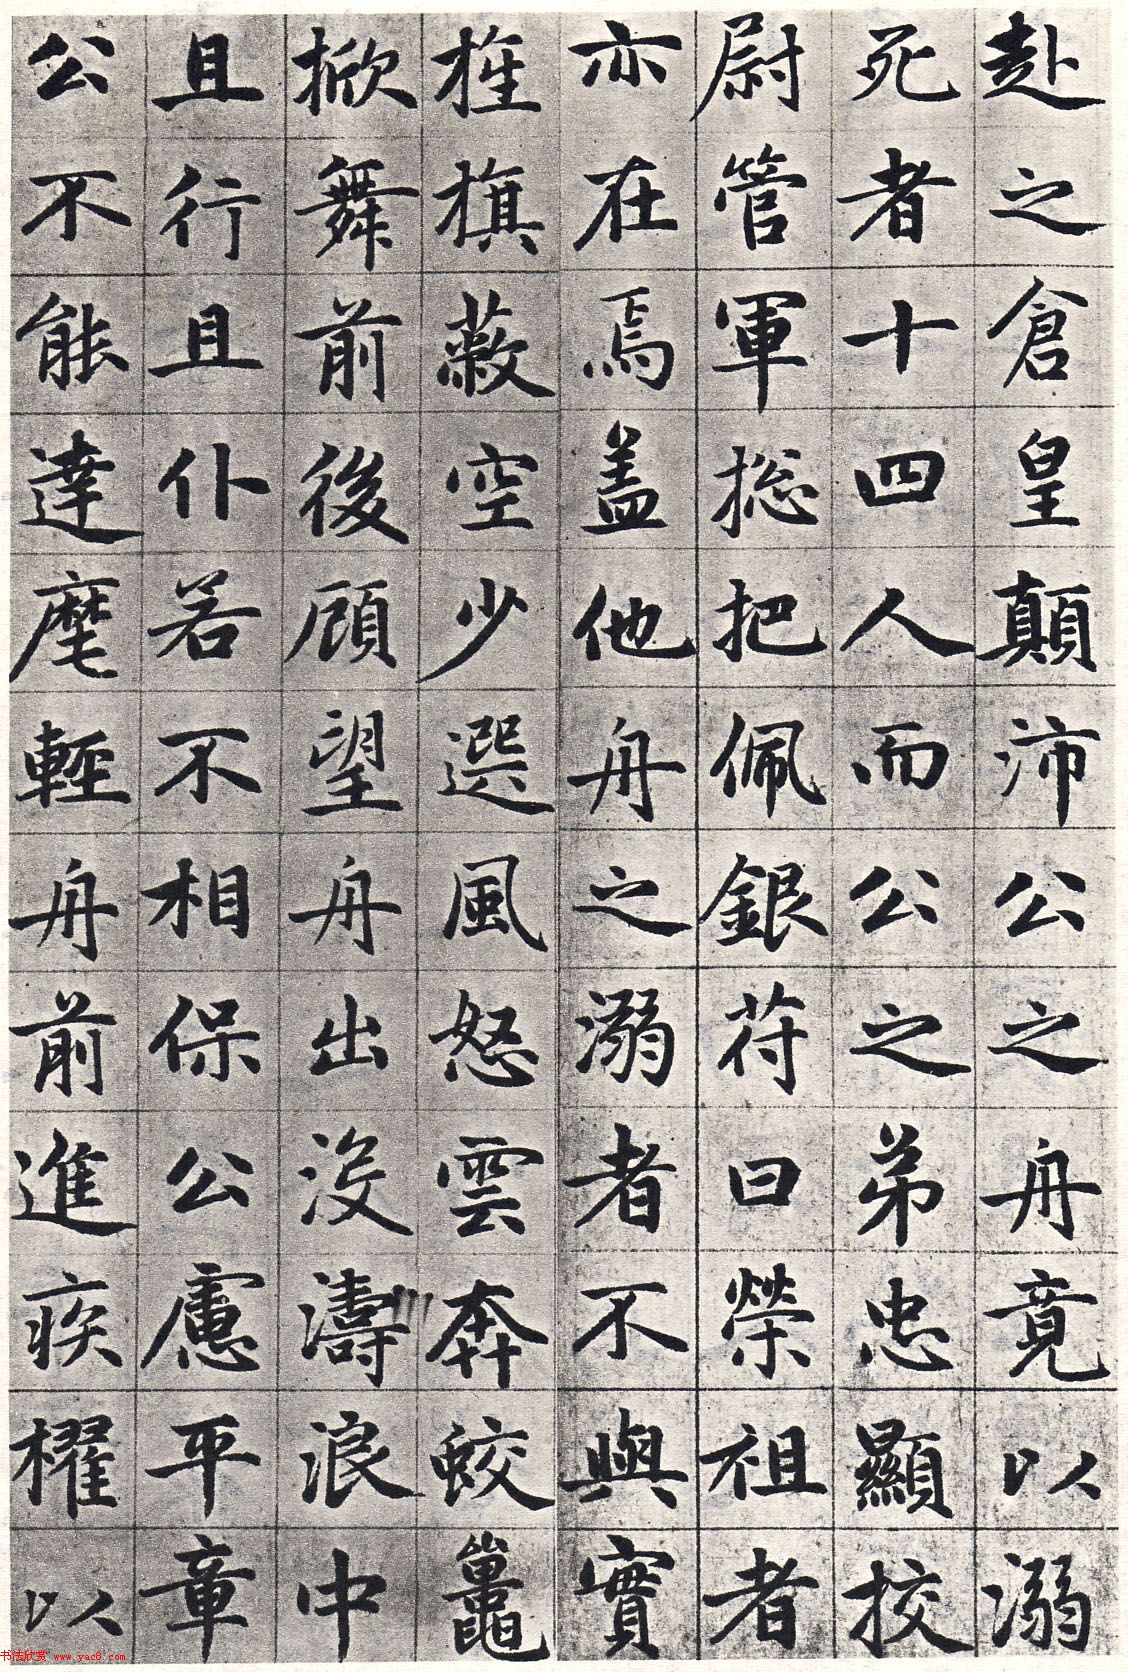 赴之倉皇顛沛公之舟竟以溺
死者十四人而公之弟忠顯挍
尉管軍捴把佩銀苻曰榮祖者
亦在焉盖他舟之溺者不與實
旌旗蔽空少選風怒雲奔蛟鼉
掀舞前後顧望舟出沒濤浪中
且行且仆若不相保公慮平章
公不能達麾輕舟前進疾櫂以
书法欣赏 www.yac8.com